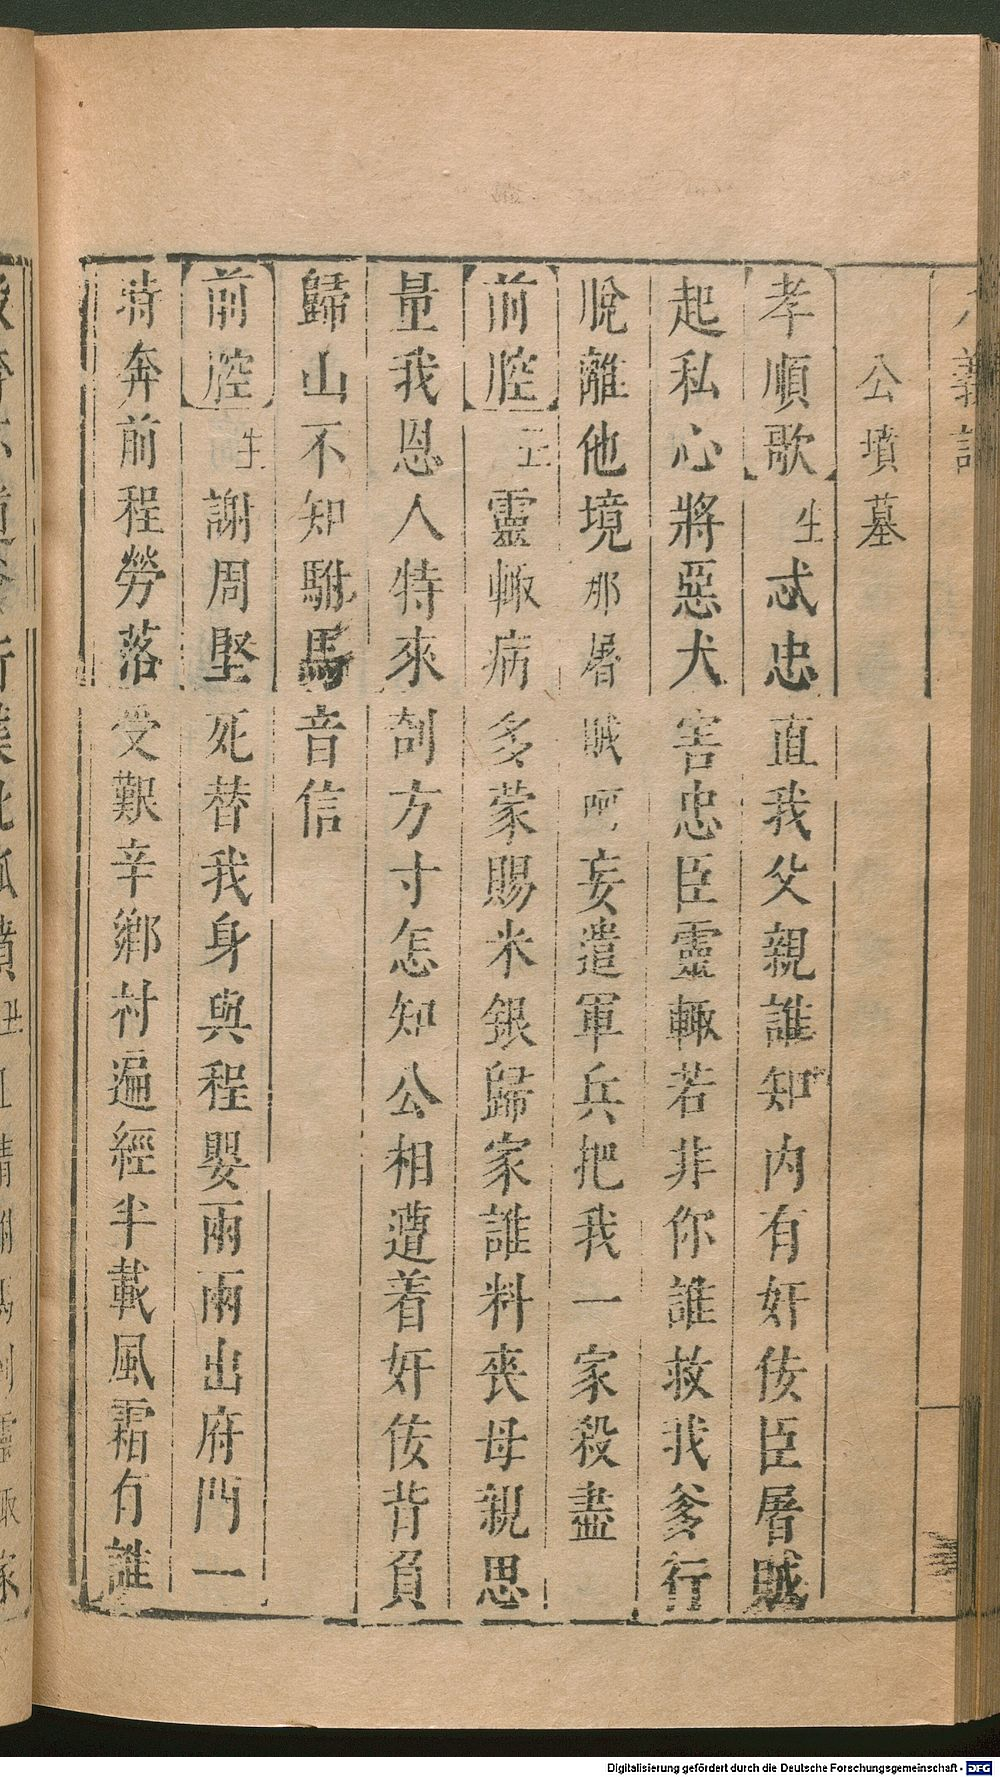 義記
公墳墓
孝順歌生忒忠直我父親誰知內有奸侫臣屠賊
起私心將惡犬害忠臣靈輒若非你誰救我爹行
脫離他境那屠賊呵妄遣軍兵把我一家殺盡
前腔丑靈輒病多蒙賜米銀歸家誰料喪母親思
量我恩人特來剖方寸怎知公相遭着奸侫背負
歸山不知駙馬音信
前腔生謝周堅死替我身與程嬰兩兩出府門一
時奔前程勞落受艱辛鄉村遍經半載風霜有誰
Digitalisierung gefördert durch die Deutsche Forschungsgemeinschaft - DFG